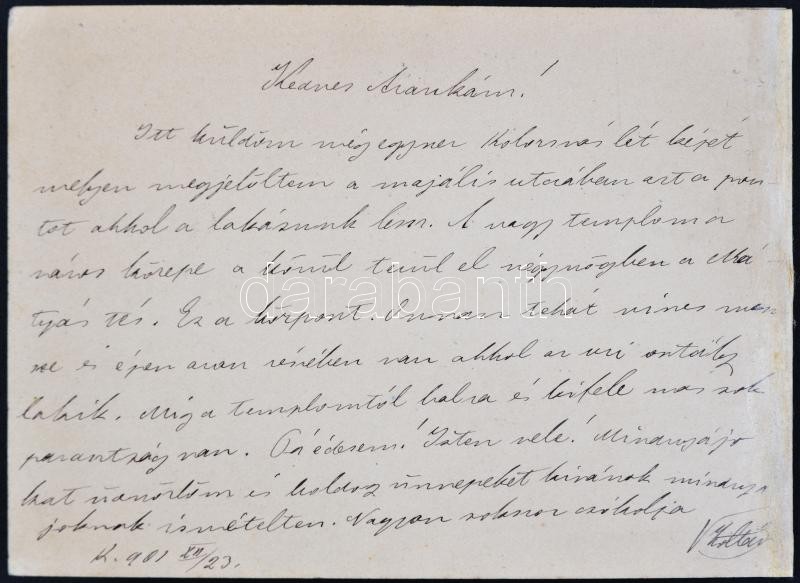 Kedves Arankám!
Itt küldöm még egyszer Kolozsvás lét képét
melyen megjelöltem a majális utczában azt a pon-
tot ahhol a lakásunk lesz. A nagy templom a
város közepe a körül terül el négyszögben a Má-
tyás tér. Ez a központ. Innan tehát nincs mesz-
sze és épen azon részében van ahhol az uri osztály
lakik. Mig a templomtól balra és kifele már sok
parasztság van. Pá édesem! Isten vele! Mindnyájo
kat üdvözlöm és boldog ünnepeket kivánok mindnyá
joknak ismételten. Nagyon sokszor csókolja
Zoltán
K. 901 XII/23.
darabanth